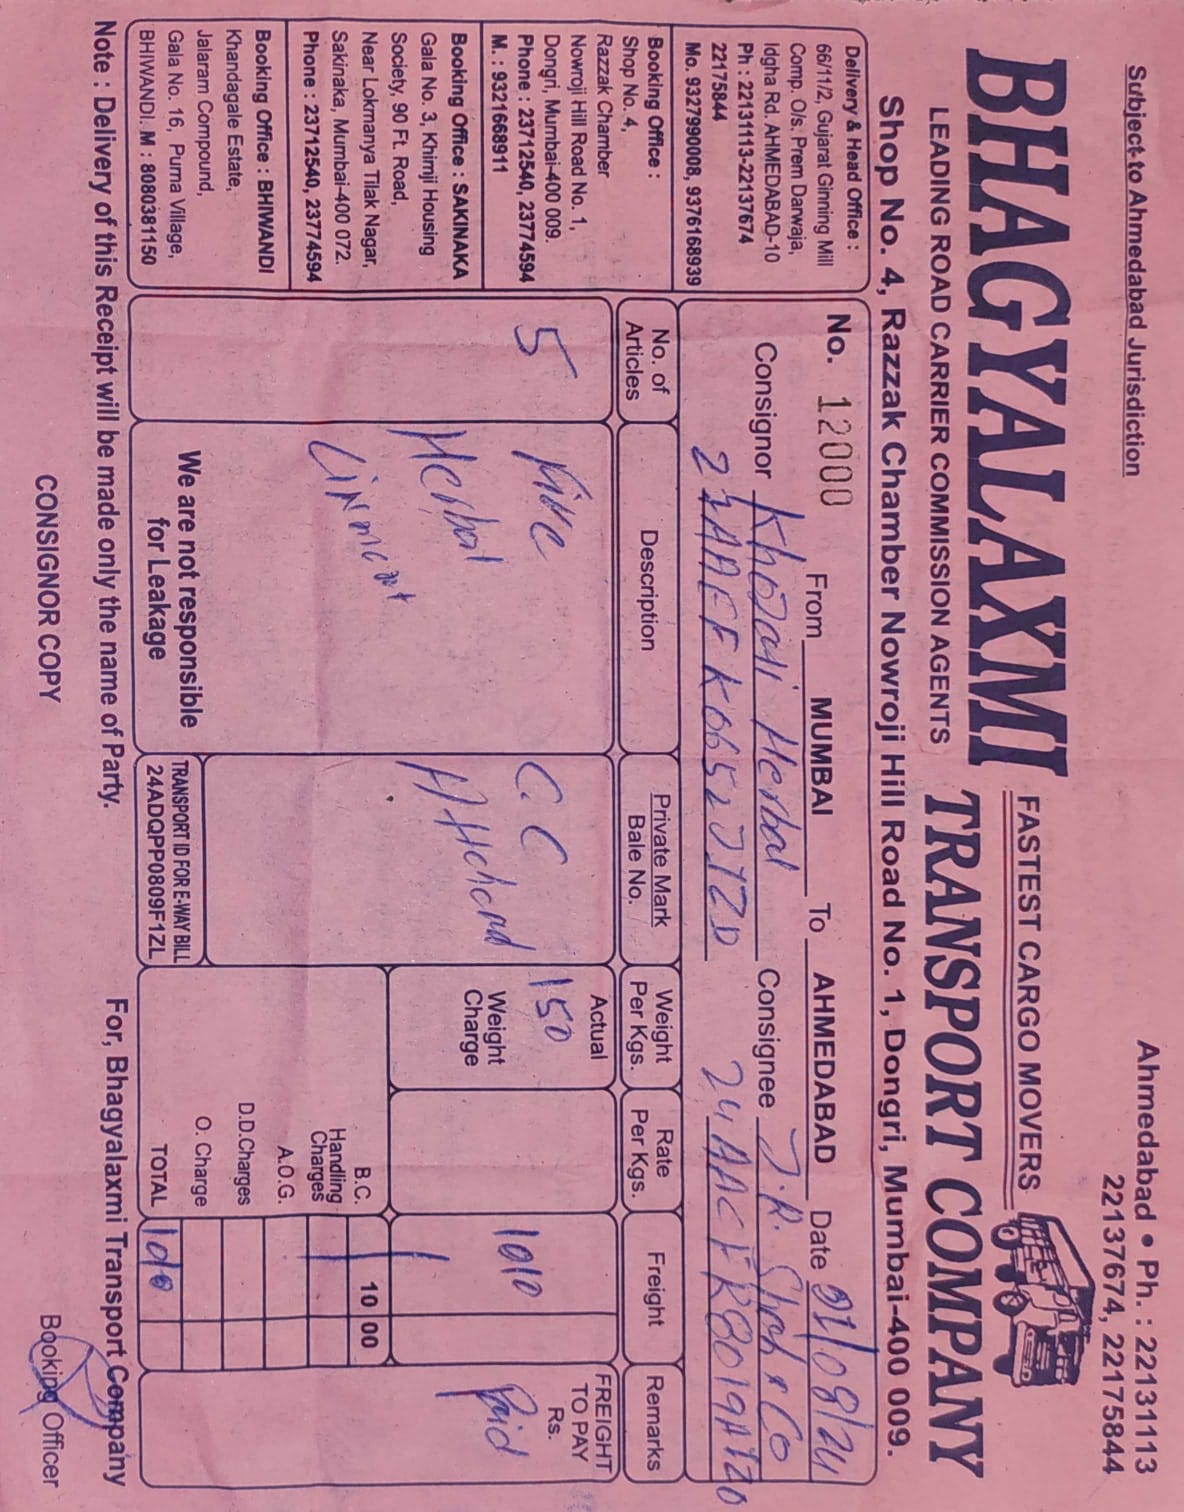 Subject to Ahmedabad Jurisdiction
Ahmedabad • Ph. : 22131113
22137674, 22175844
BHAGYALAXMI
FASTEST CARGO MOVERS
TRANSPORT COMPANY
LEADING ROAD CARRIER COMMISSION AGENTS
Shop No. 4, Razzak Chamber Nowroji Hill Road No. 1, Dongri, Mumbai-400 009.
Delivery & Head Office :
66/11/2, Gujarat Ginning Mill
Comp. O/s. Prem Darwaja,
Idgha Rd. AHMEDABAD-10
Ph : 22131113-22137674
22175844
Mo. 9327990008, 9376168939
Booking Office :
Shop No. 4,
Razzak Chamber
Nowroji Hill Road No. 1,
Dongri, Mumbai-400 009.
Phone : 23712540, 23774594
M. : 9321668911
Booking Office : SAKINAKA
Gala No. 3, Khimji Housing
Society, 90 Ft. Road,
Near Lokmanya Tilak Nagar,
Sakinaka, Mumbai-400 072.
Phone : 23712540, 23774594
Booking Office : BHIWANDI
Khandagale Estate,
Jalaram Compound,
Gala No. 16, Purna Village,
BHIWANDI. M : 8080381150
No. 12000 From MUMBAI To AHMEDABAD Date 21/08/24
Consignor Khodal Herbal Consignee J.R. Shah & Co
No. of Articles
Description
Private Mark
Bale No.
Weight Per Kgs.
Rate Per Kgs.
Freight
Remarks
5
Five
Herbal
Liniment
C.C
Attached
Actual
150
Weight Charge
1010
FREIGHT TO PAY Rs.
Paid
B.C. 10 00
Handling Charges
A.O.G.
D.D.Charges
O. Charge
TOTAL
We are not responsible
for Leakage
TRANSPORT ID FOR E-WAY BILL
24ADQPP0809F1ZL
Note : Delivery of this Receipt will be made only the name of Party.
For, Bhagyalaxmi Transport Company
CONSIGNOR COPY
Booking Officer